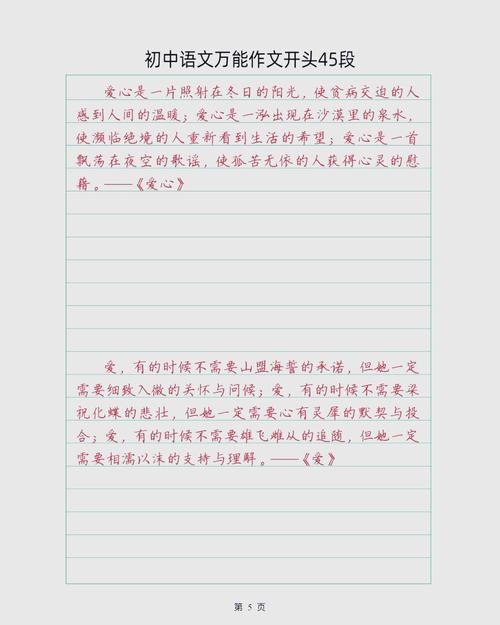 初中语文万能作文开头45段
爱心是一片照射在冬日的阳光，使贫病交迫的人
感到人间的温暖；爱心是一泓出现在沙漠里的泉水，
使濒临绝境的人重新看到生活的希望；爱心是一首
飘荡在夜空的歌谣，使孤苦无依的人获得心灵的慰
藉。——《爱心》
爱，有的时候不需要山盟海誓的承诺，但她一定
需要细致入微的关怀与问候；爱，有的时候不需要梁
祝化蝶的悲壮，但她一定需要心有灵犀的默契与投
合；爱，有的时候不需要雄飞雌从的追随，但她一定
需要相濡以沫的支持与理解。——《爱》
第 5 页